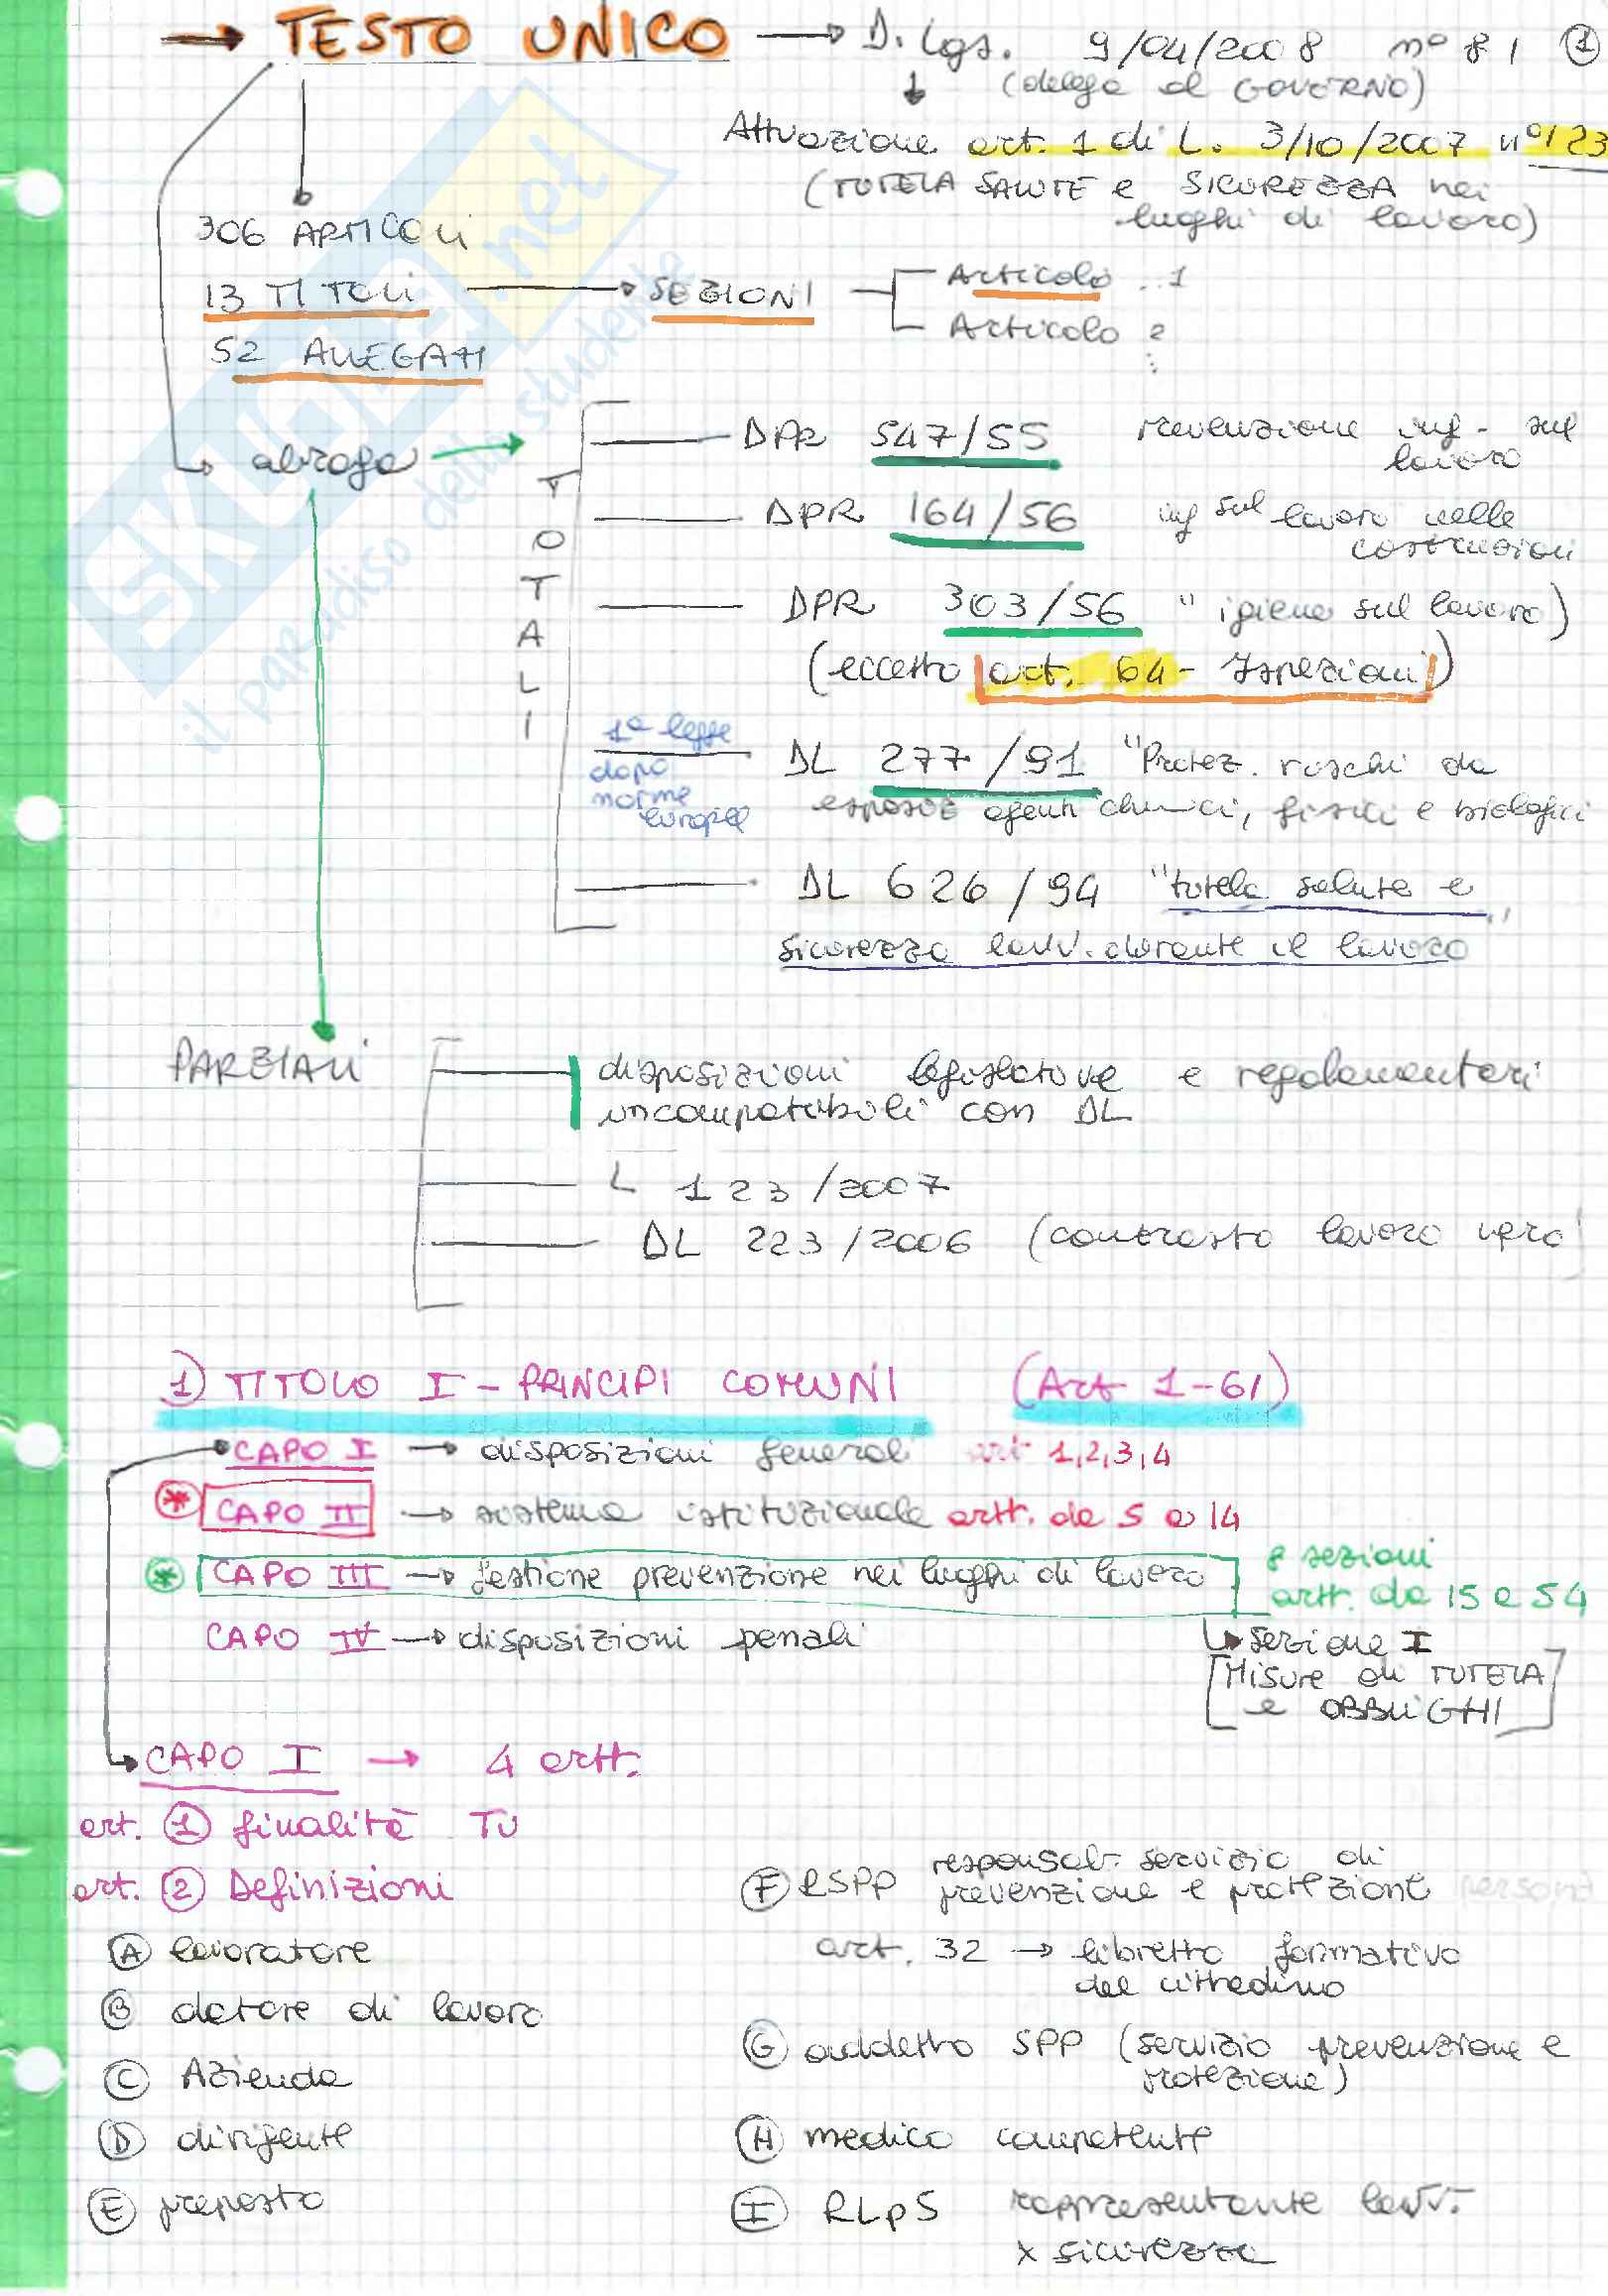 → TESTO UNICO → D. Lgs. 9/04/2008 n° 81 ①
(delega al GOVERNO)
Attuazione art. 1 di L. 3/10/2007 n° 123
(TUTELA SALUTE e SICUREZZA nei
luoghi di lavoro)
306 ARTICOLI
13 TITOLI → SEZIONI Articolo 1
52 ALLEGATI Articolo 2
abroga →
TOTALI
DPR 547/55 prevenzione inf. sul
lavoro
DPR 164/56 inf sul lavoro nelle
costruzioni
DPR 303/56 " igiene sul lavoro)
(eccetto art. 64 - Ispezioni)
1ª legge
dopo
norme
europee
DL 277/91 "Protez. rischi da
esposiz agenti chimici, fisici e biologici
DL 626/94 "tutela salute e
sicurezza lavv. durante il lavoro"
PARZIALI
disposizioni legislative e regolamentari
incompatibili con DL
L 123/2007
DL 223/2006 (contrasto lavoro nero)
1) TITOLO I - PRINCIPI COMUNI (Art 1-61)
CAPO I → disposizioni generali art 1,2,3,4
* CAPO II → sistema istituzionale artt. da 5 a 14
* CAPO III → gestione prevenzione nei luoghi di lavoro 8 sezioni
artt. da 15 a 54
CAPO IV → disposizioni penali
↳ sezione I
[Misure di TUTELA
e OBBLIGHI]
CAPO I → 4 artt.
art. ① finalità TU
art. ② Definizioni
Ⓐ lavoratore
Ⓑ datore di lavoro
Ⓒ Azienda
Ⓓ dirigente
Ⓔ preposto
Ⓕ RSPP responsab. servizio di
prevenzione e protezione
art. 32 → libretto formativo
del cittadino
Ⓖ addetto SPP (servizio prevenzione e
protezione)
Ⓗ medico competente
Ⓘ RLpS rappresentante lavv.
x sicurezza
SKUOLA.net
il paradiso dello studente